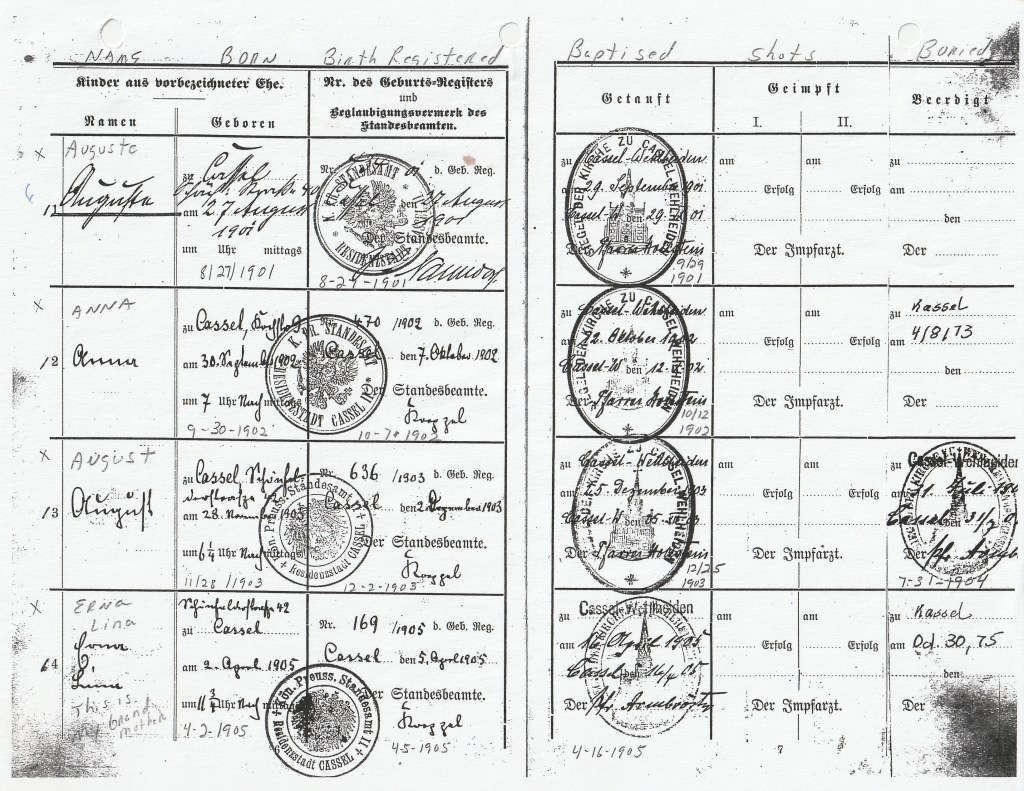 NAME BORN Birth Registered Baptised Shots Buried
Kinder aus vorbezeichneter Ehe.
Namen Geboren
Nr. des Geburts-Registers
und
Beglaubigungsvermerk des
Standesbeamten.
Getauft
Geimpft
I. II.
Beerdigt
x
Auguste
Auguste
zu Cassel
am 27 August
1901
um Uhr mittags
8/27/1901
Nr. d. Geb. Reg.
Cassel den 27 August
1901
Der Standesbeamte.
8-29-1901
K. PR. STANDESAMT
RESIDENZSTADT
zu Cassel-Wehlheiden
am 29. September 1901
Cassel-W den 29. 01
Der Pfarrer
9/29
1901
SIEGEL DER KIRCHE ZU CASSEL-WEHLHEIDEN
am am
Erfolg Erfolg
Der Impfarzt.
zu
am
den
Der
x
ANNA
12 Anna
zu Cassel,
am 30. September 1902
um 7 Uhr Nachmittags
9-30-1902
Nr. 470 /1902 d. Geb. Reg.
Cassel den 7. Oktober 1902
Der Standesbeamte.
10-7-1902
K. PR. STANDESAMT
RESIDENZSTADT CASSEL II
zu Cassel-Wehlheiden
am 12. Oktober 1902
Cassel-W den 12. 02
Der Pfarrer
10/12
1902
SIEGEL DER KIRCHE ZU CASSEL-WEHLHEIDEN
am am
Erfolg Erfolg
Der Impfarzt.
zu Kassel
am 4/8/73
den
Der
x
AUGUST
13 August
zu Cassel, Schönfel-
derstrasse 42
am 28. November 1903
um 6 1/4 Uhr Nachmittags
11/28/1903
Nr. 636 /1903 d. Geb. Reg.
Cassel den 2. Dezember 1903
Der Standesbeamte.
12-2-1903
Kön. Preuss. Standesamt II
Residenstadt CASSEL
zu Cassel-Wehlheiden
am 25. Dezember 1903
Cassel-W den 25. 03
Der Pfarrer
12/25
1903
am am
Erfolg Erfolg
Der Impfarzt.
zu Cassel-Wehlheiden
am 31. Juli 1904
Cassel den 31/7 04
Der Pfr. Armbr
7-31-1904
x
ERNA
Lina
14 Erna
Lina
This is
my grand
mother
Schönfelderstrasse 42
zu Cassel
am 2. April 1905
um 11 3/4 Uhr Nachmittags
4-2-1905
Nr. 169 /1905 d. Geb. Reg.
Cassel den 5. April 1905
Der Standesbeamte.
4-5-1905
Kön. Preuss. Standesamt II
Residenstadt CASSEL
zu Cassel-Wehlheiden
am 16. April 1905
Cassel den 16/4 05
Der Pfr. Armbröster
4-16-1905
am am
Erfolg Erfolg
Der Impfarzt.
7
zu Kassel
am Od. 30, 75
den
Der